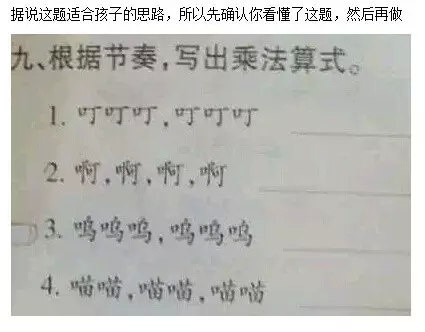 据说这题适合孩子的思路，所以先确认你看懂了这题，然后再做
九、根据节奏，写出乘法算式。
1. 叮叮叮，叮叮叮
2. 啊，啊，啊，啊
3. 呜呜呜，呜呜呜
4. 喵喵，喵喵，喵喵